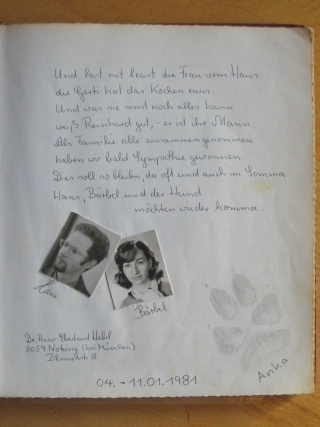 Und last not least die Frau vom Haus
die Gerti hat das Kochen raus.
Und was sie sonst noch alles kann
weiß Reinhard gut, - er ist ihr Mann.
Als Familie alle zusammengenommen
haben wir bald Sympathie gewonnen.
Dies soll so bleiben, da oft und auch im Somma
Hans, Bärbel und der Hund
möchten wieder komma.
Hans
Bärbel
Dr. Hans-Eberhard
8059 Notzing (bei München)
04. - 11.01.1981
Anka